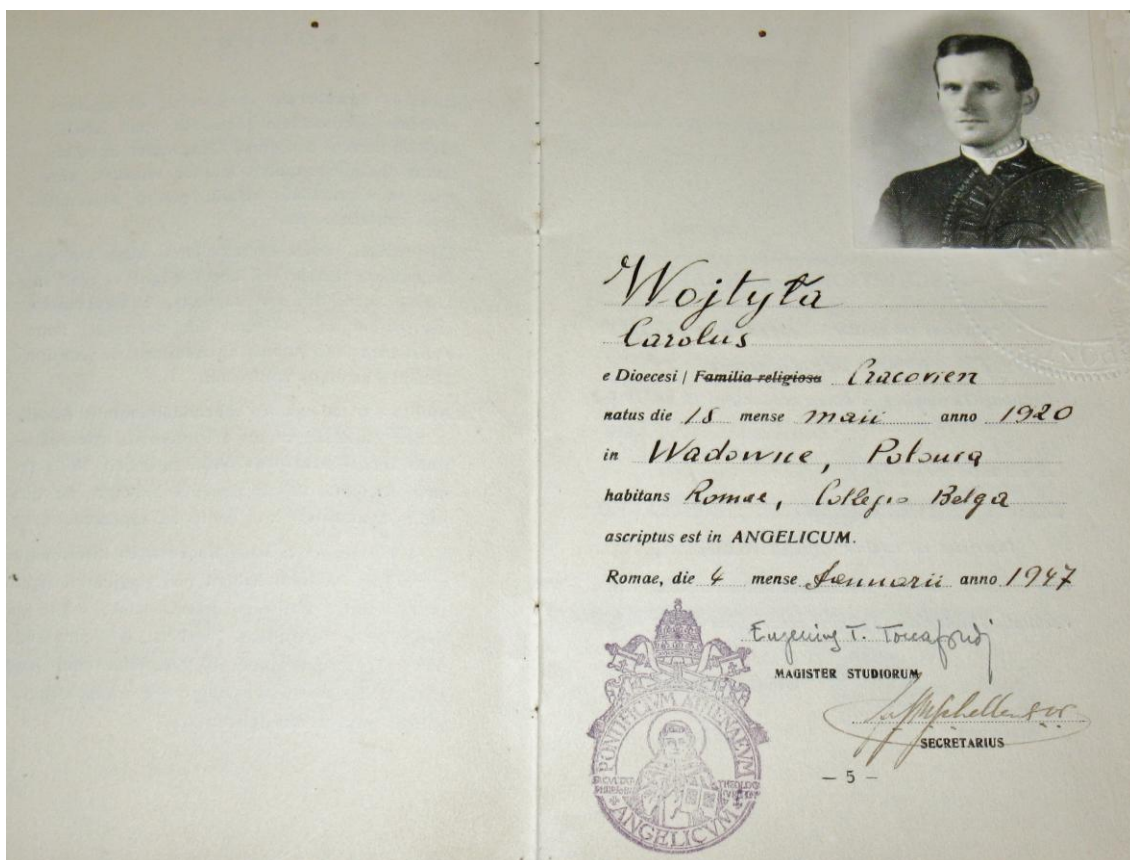 Wojtyła
Carolus
e Dioecesi / Familia religiosa Cracovien
natus die 18 mense maii anno 1920
in Wadowice, Polonia
habitans Romae, Collegio Belga
ascriptus est in ANGELICUM.
Romae, die 4 mense Januarii anno 1947
Eugenius T. Toccafondi
MAGISTER STUDIORUM
SECRETARIUS
— 5 —
PONTIFICIVM ATHENAEVM
ANGELICVM